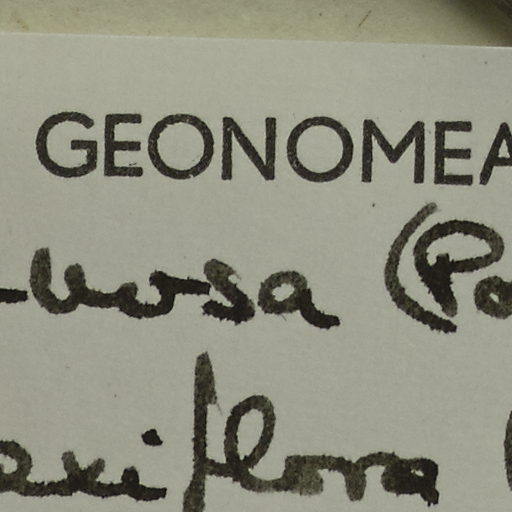 GEONOMEA
uosa (Po
axiflora (